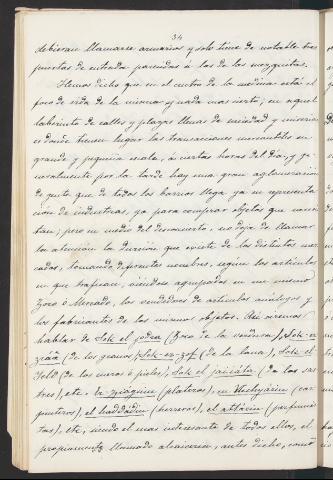 34
debieran llamarse armarios y solo tiene de notable tres
puertas de entrada parecidas á las de las mezquitas.
Hemos dicho que en el centro de la medina está el
foco de vida de la misma y nada mas cierto; en aquel
laberinto de calles y plazas llenas de suciedad y miseria
es donde tienen lugar las transacciones mercantiles en
grande y pequeña escala, á ciertas horas del dia, y ge-
neralmente por la tarde hay una gran aglomeracion
de gente que de todos los barrios llega ya en representa-
cion de industrias, ya para comprar objetos que necesi-
tan; pero en medio del desconcierto, no deja de llamar
la atencion la division que existe de los distintos mer-
cados, tomando diferentes nombres, segun los articulos
en que trafican, siendo agrupados en un mismo
Zoco ó Mercado, los vendedores de articulos análogos y
los fabricantes de los mismos objetos. Asi oiremos
hablar de Sok el jodra (Zoco de la verdura), Sok-ez-
zráá (de los granos), Sok-ez-zof (de la lana), Sok el
(de los cueros ó pieles), Sok el jaiáta (de los sas-
tres), etc. (plateros), en (car-
pinteros), el haddádin (herreros), el attárin (perfumis-
tas), etc, siendo el mas interesante de todos ellos, el
propiamente llamado alcaiceria, antes dicho, como